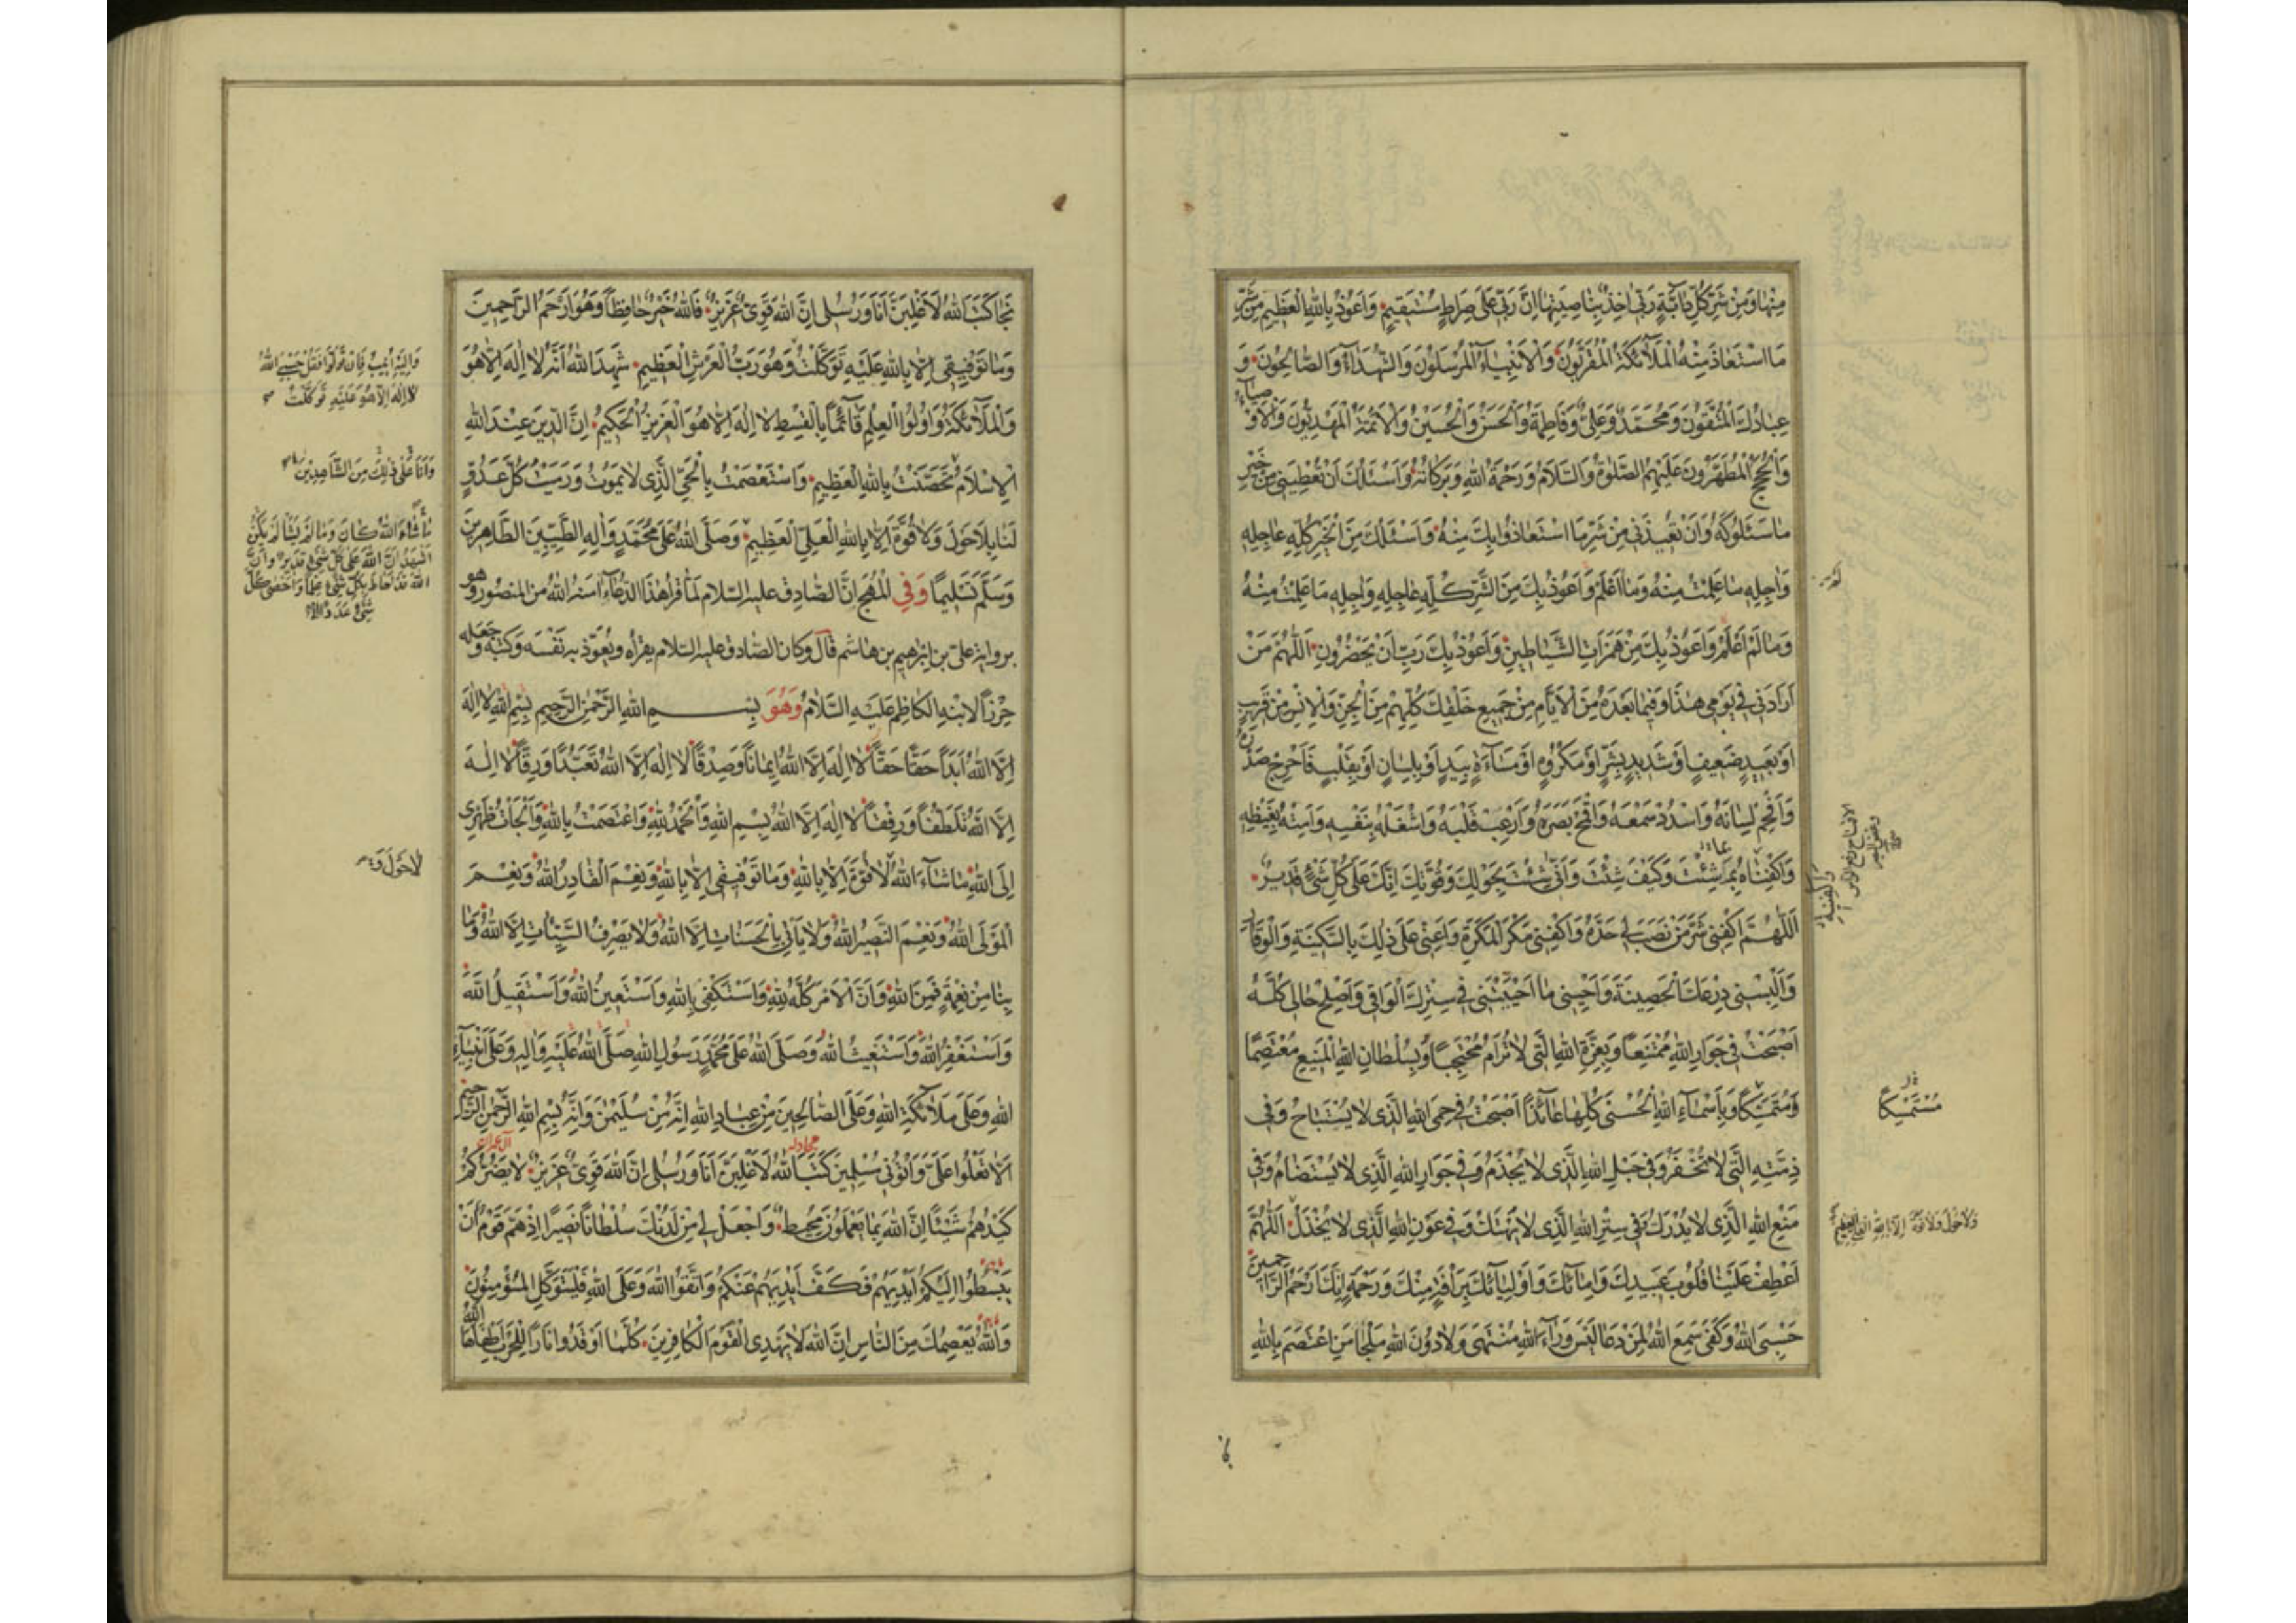 مِنْهَا وَمِنْ شَرِّ كُلِّ دَابَّةٍ رَبِّي اٰخِذٌ بِنَاصِيَتِهَا اِنَّ رَبِّي عَلٰى صِرَاطٍ مُسْتَقِيمٍ وَاَعُوذُ بِاللهِ الْعَظِيمِ مِنْ شَرِّ
مَا اسْتَعَاذَ مِنْهُ الْمَلَآئِكَةُ الْمُقَرَّبُونَ وَالْاَنْبِيَآءُ الْمُرْسَلُونَ وَالشُّهَدَآءُ وَالصَّالِحُونَ وَ
عِبَادُكَ الْمُتَّقُونَ وَمُحَمَّدٌ وَعَلِيٌّ وَفَاطِمَةُ وَالْحَسَنُ وَالْحُسَيْنُ وَالْاَئِمَّةُ الْمَهْدِيُّونَ وَالْاَوْصِيَآءُ
وَالْحُجَجُ الْمُطَهَّرُونَ عَلَيْهِمُ الصَّلٰوةُ وَالسَّلَامُ وَرَحْمَةُ اللهِ وَبَرَكَاتُهُ وَاَسْئَلُكَ اَنْ تُعْطِيَنِي مِنْ خَيْرِ
مَا سَئَلُوكَهُ وَاَنْ تُعِيذَنِي مِنْ شَرِّ مَا اسْتَعَاذُوا بِكَ مِنْهُ وَاَسْئَلُكَ مِنَ الْخَيْرِ كُلِّهِ عَاجِلِهِ
وَاٰجِلِهِ مَا عَلِمْتُ مِنْهُ وَمَا اَعْلَمْ وَاَعُوذُ بِكَ مِنَ الشَّرِّ كُلِّهِ عَاجِلِهِ وَاٰجِلِهِ مَا عَلِمْتُ مِنْهُ
وَمَا لَمْ اَعْلَمْ وَاَعُوذُ بِكَ مِنْ هَمَزَاتِ الشَّيَاطِينِ وَاَعُوذُ بِكَ رَبِّ اَنْ يَحْضُرُونِ اَللّٰهُمَّ مَنْ
اَرَادَنِي فِي يَوْمِي هٰذَا وَفِيمَا بَعْدَهُ مِنَ الْاَيَّامِ مِنْ جَمِيعِ خَلْقِكَ كُلِّهِمْ مِنَ الْجِنِّ وَالْاِنْسِ مِنْ قَرِيبٍ
اَوْ بَعِيدٍ ضَعِيفٍ اَوْ شَدِيدٍ بِشَرٍّ اَوْ مَكْرُوهٍ اَوْ مَسَآءَةٍ بِيَدٍ اَوْ بِلِسَانٍ اَوْ بِقَلْبٍ فَاَحْرِجْ صَدْرَهُ
وَاَفْحِمْ لِسَانَهُ وَاسْدُدْ سَمْعَهُ وَاقْمَحْ بَصَرَهُ وَارْعَبْ قَلْبَهُ وَاشْغَلْهُ بِنَفْسِهِ وَاَمِتْهُ بِغَيْظِهِ
وَاكْفِنَاهُ بِمَ شِئْتَ وَكَيْفَ شِئْتَ وَاَنّٰى شِئْتَ بِحَوْلِكَ وَقُوَّتِكَ اِنَّكَ عَلٰى كُلِّ شَيْءٍ قَدِيرٌ
اَللّٰهُمَّ اكْفِنِي شَرَّ مَنْ نَصَبَ لِي حَدَّهُ وَاكْفِنِي مَكْرَ الْمَكَرَةِ وَاَعِنِّي عَلٰى ذٰلِكَ بِالسَّكِينَةِ وَالْوَقَارِ
وَاَلْبِسْنِي دِرْعَكَ الْحَصِينَةَ وَاَحْيِنِي مَا اَحْيَيْتَنِي فِي سِتْرِكَ الْوَاقِي وَاَصْلِحْ حَالِي كُلَّهُ
اَصْبَحْتُ فِي جِوَارِ اللهِ مُمْتَنِعًا وَبِعِزَّةِ اللهِ الَّتِي لَا تُرَامُ مُحْتَجِبًا وَبِسُلْطَانِ اللهِ الْمَنِيعِ مُعْتَصِمًا
وَمُتَمَسِّكًا وَبِاَسْمَآءِ اللهِ الْحُسْنٰى كُلِّهَا عَائِذًا اَصْبَحْتُ فِي حِمَى اللهِ الَّذِي لَا يُسْتَبَاحُ وَفِي
ذِمَّتِهِ الَّتِي لَا تُخْفَرُ وَفِي حَبْلِ اللهِ الَّذِي لَا يُجْذَمُ وَفِي جِوَارِ اللهِ الَّذِي لَا يُسْتَضَامُ وَفِي
مَنْعِ اللهِ الَّذِي لَا يُدْرَكُ وَفِي سِتْرِ اللهِ الَّذِي لَا يُهْتَكُ وَفِي عَوْنِ اللهِ الَّذِي لَا يُخْذَلُ اَللّٰهُمَّ
اَعْطِفْ عَلَيْنَا قُلُوبَ عَبِيدِكَ وَاِمَآئِكَ وَاَوْلِيَآئِكَ بِرَاْفَةٍ مِنْكَ وَرَحْمَةٍ اِنَّكَ اَرْحَمُ الرَّاحِمِينَ
حَسْبِيَ اللهُ وَكَفٰى سَمِعَ اللهُ لِمَنْ دَعَا لَيْسَ وَرَآءَ اللهِ مُنْتَهٰى وَلَا دُونَ اللهِ مَلْجَاٌ مَنِ اعْتَصَمَ بِاللهِ
مُسْتَمْسِكًا
وَلَا حَوْلَ وَلَا قُوَّةَ اِلَّا بِاللهِ الْعَلِيِّ الْعَظِيمِ
نَجَا كَتَبَ اللهُ لَاَغْلِبَنَّ اَنَا وَرُسُلِي اِنَّ اللهَ قَوِيٌّ عَزِيزٌ فَاللهُ خَيْرٌ حَافِظًا وَهُوَ اَرْحَمُ الرَّاحِمِينَ
وَمَا تَوْفِيقِي اِلَّا بِاللهِ عَلَيْهِ تَوَكَّلْتُ وَهُوَ رَبُّ الْعَرْشِ الْعَظِيمِ شَهِدَ اللهُ اَنَّهُ لَا اِلٰهَ اِلَّا هُوَ
وَالْمَلَآئِكَةُ وَاُولُوا الْعِلْمِ قَآئِمًا بِالْقِسْطِ لَا اِلٰهَ اِلَّا هُوَ الْعَزِيزُ الْحَكِيمُ اِنَّ الدِّينَ عِنْدَ اللهِ
الْاِسْلَامُ تَحَصَّنْتُ بِاللهِ الْعَظِيمِ وَاسْتَعْصَمْتُ بِالْحَيِّ الَّذِي لَا يَمُوتُ وَرَمَيْتُ كُلَّ عَدُوٍّ
لَنَا بِلَا حَوْلَ وَلَا قُوَّةَ اِلَّا بِاللهِ الْعَلِيِّ الْعَظِيمِ وَصَلَّى اللهُ عَلٰى مُحَمَّدٍ وَاٰلِهِ الطَّيِّبِينَ الطَّاهِرِينَ
وَسَلَّمَ تَسْلِيمًا وَفِي الْمُهَجِ اِنَّ الصَّادِقَ عليه السلام لَمَّا قَرَأَ هٰذَا الدُّعَآءَ اٰمَنَهُ اللهُ مِنَ المنصور وَهُوَ
برواية علي بن ابرهيم بن هاشم قال وكان الصادق عليه السلام يقرأه ويعوّذ به نفسه وكتبه وجعله
حِرْزًا لابنه الكاظم عَلَيْهِ السَّلَامُ وَهُوَ بِسْمِ اللهِ الرَّحْمٰنِ الرَّحِيمِ بِسْمِ اللهِ لَا اِلٰهَ
اِلَّا اللهُ اَبَدًا حَقًّا حَقًّا لَا اِلٰهَ اِلَّا اللهُ اِيمَانًا وَصِدْقًا لَا اِلٰهَ اِلَّا اللهُ تَعَبُّدًا وَرِقًّا لَا اِلٰهَ
اِلَّا اللهُ تَلَطُّفًا وَرِفْقًا لَا اِلٰهَ اِلَّا اللهُ بِسْمِ اللهِ وَالْحَمْدُ لِلّٰهِ وَاعْتَصَمْتُ بِاللهِ وَاَلْجَأْتُ ظَهْرِي
اِلَى اللهِ مَا شَآءَ اللهُ لَا قُوَّةَ اِلَّا بِاللهِ وَمَا تَوْفِيقِي اِلَّا بِاللهِ وَنِعْمَ الْقَادِرُ اللهُ وَنِعْمَ
الْمَوْلَى اللهُ وَنِعْمَ النَّصِيرُ اللهُ وَلَا يَأْتِي بِالْحَسَنَاتِ اِلَّا اللهُ وَلَا يَصْرِفُ السَّيِّئَاتِ اِلَّا اللهُ وَمَا
بِنَا مِنْ نِعْمَةٍ فَمِنَ اللهِ وَاَنَّ الْاَمْرَ كُلَّهُ لِلّٰهِ وَاَسْتَكْفِي بِاللهِ وَاَسْتَعِينُ اللهَ وَاَسْتَقِيلُ اللهَ
وَاَسْتَغْفِرُ اللهَ وَاَسْتَغِيثُ اللهَ وَصَلَّى اللهُ عَلٰى مُحَمَّدٍ رَسُولِ اللهِ صَلَّى اللهُ عَلَيْهِ وَاٰلِهِ وَعَلٰى اَنْبِيَآءِ
اللهِ وَعَلٰى مَلَآئِكَةِ اللهِ وَعَلَى الصَّالِحِينَ مِنْ عِبَادِ اللهِ اِنَّهُ مِنْ سُلَيْمٰنَ وَاِنَّهُ بِسْمِ اللهِ الرَّحْمٰنِ الرَّحِيمِ
اَلَّا تَعْلُوا عَلَيَّ وَأْتُونِي مُسْلِمِينَ كَتَبَ اللهُ لَاَغْلِبَنَّ اَنَا وَرُسُلِي اِنَّ اللهَ قَوِيٌّ عَزِيزٌ لَا يَضُرُّكُمْ
كَيْدُهُمْ شَيْئًا اِنَّ اللهَ بِمَا يَعْمَلُونَ مُحِيطٌ وَاجْعَلْ لِي مِنْ لَدُنْكَ سُلْطَانًا نَصِيرًا اِذْ هَمَّ قَوْمٌ اَنْ
يَبْسُطُوا اِلَيْكُمْ اَيْدِيَهُمْ فَكَفَّ اَيْدِيَهُمْ عَنْكُمْ وَاتَّقُوا اللهَ وَعَلَى اللهِ فَلْيَتَوَكَّلِ الْمُؤْمِنُونَ
وَاللهُ يَعْصِمُكَ مِنَ النَّاسِ اِنَّ اللهَ لَا يَهْدِي الْقَوْمَ الْكَافِرِينَ كُلَّمَا اَوْقَدُوا نَارًا لِلْحَرْبِ اَطْفَاَهَا اللهُ
وَاِلَيْهِ اُنِيبُ فَاِنْ تَوَلَّوْا فَقُلْ حَسْبِيَ اللهُ
لَا اِلٰهَ اِلَّا هُوَ عَلَيْهِ تَوَكَّلْتُ
وَاَنَا عَلٰى ذٰلِكَ مِنَ الشَّاهِدِينَ
مَا شَآءَ اللهُ كَانَ وَمَا لَمْ يَشَأْ لَمْ يَكُنْ
اَشْهَدُ اَنَّ اللهَ عَلٰى كُلِّ شَيْءٍ قَدِيرٌ وَاَنَّ
اللهَ قَدْ اَحَاطَ بِكُلِّ شَيْءٍ عِلْمًا وَاَحْصٰى كُلَّ
شَيْءٍ عَدَدًا
لَا حَوْلَ وَ